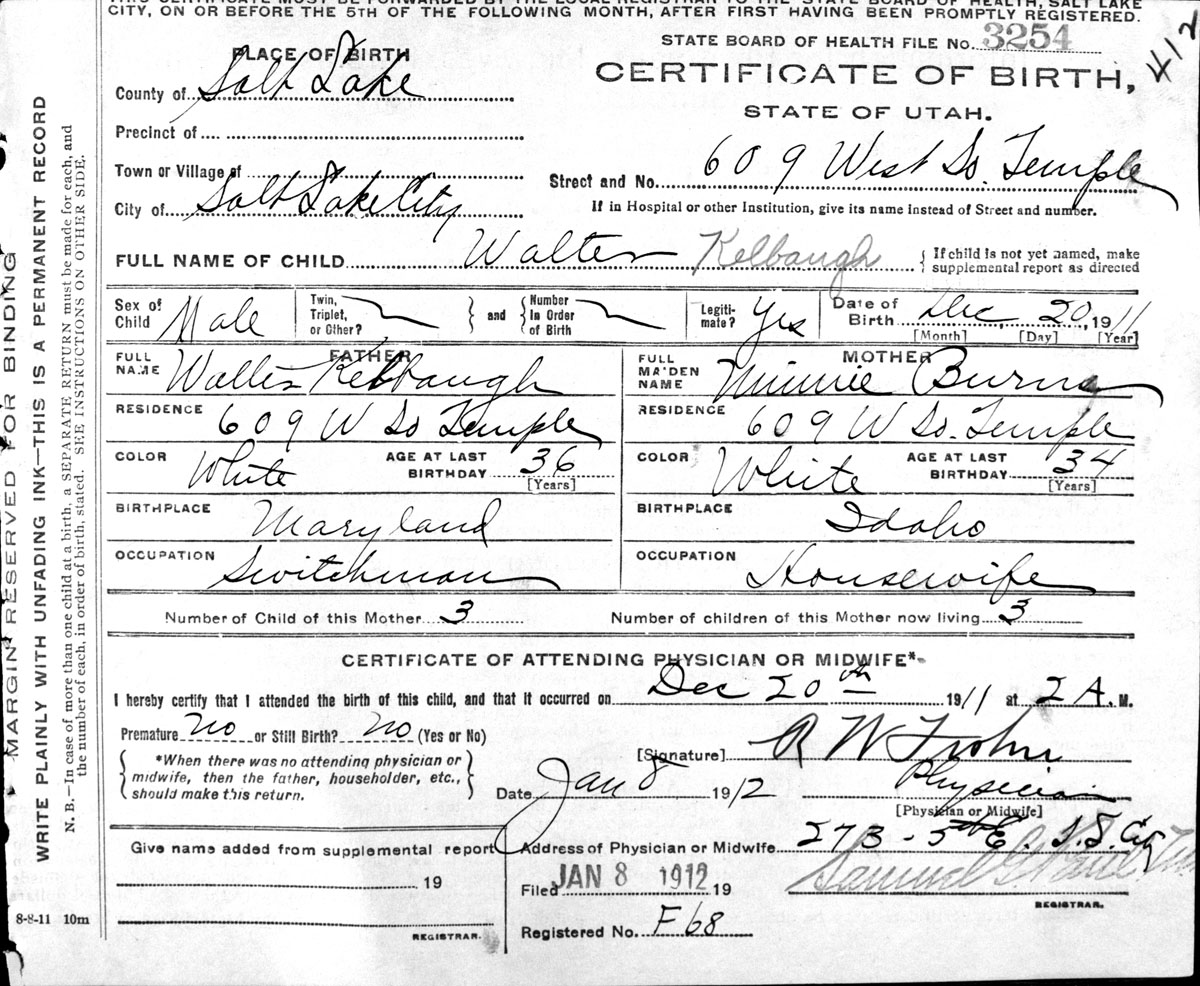 THIS CERTIFICATE MUST BE FORWARDED BY THE LOCAL REGISTRAR TO THE STATE BOARD OF HEALTH, SALT LAKE
CITY, ON OR BEFORE THE 5TH OF THE FOLLOWING MONTH, AFTER FIRST HAVING BEEN PROMPTLY REGISTERED.
412
STATE BOARD OF HEALTH FILE No. 3254
PLACE OF BIRTH
CERTIFICATE OF BIRTH,
County of Salt Lake
STATE OF UTAH.
Precinct of
Town or Village of
Street and No. 609 West So. Temple
City of Salt Lake City
If in Hospital or other Institution, give its name instead of Street and number.
FULL NAME OF CHILD Walter Kelbaugh { If child is not yet named, make
supplemental report as directed
Sex of Child Male
Twin, Triplet, or Other? } and { Number In Order of Birth
Legitimate? Yes
Date of Birth Dec, 20, 1911
[Month] [Day] [Year]
FATHER
FULL NAME Walter Kelbaugh
RESIDENCE 609 W So Temple
COLOR White AGE AT LAST BIRTHDAY 36
[Years]
BIRTHPLACE Maryland
OCCUPATION Switchman
MOTHER
FULL MAIDEN NAME Minnie Burns
RESIDENCE 609 W So. Temple
COLOR White AGE AT LAST BIRTHDAY 34
[Years]
BIRTHPLACE Idaho
OCCUPATION Housewife
Number of Child of this Mother 3 Number of children of this Mother now living 3
CERTIFICATE OF ATTENDING PHYSICIAN OR MIDWIFE*
I hereby certify that I attended the birth of this child, and that it occurred on Dec 20th 1911 at 2 A. M.
Premature no or Still Birth? no (Yes or No)
{ *When there was no attending physician or
midwife, then the father, householder, etc.,
should make this return. }
[Signature] R W
Physician
[Physician or Midwife]
Date Jan 8 1912
Address of Physician or Midwife 273 - 5th E. S. L. City
Give name added from supplemental report
19
REGISTRAR.
Filed JAN 8 1912 19
Samuel
REGISTRAR.
Registered No. F68
8-8-11 10m
MARGIN RESERVED FOR BINDING
WRITE PLAINLY WITH UNFADING INK—THIS IS A PERMANENT RECORD
N. B.—In case of more than one child at a birth, a SEPARATE RETURN must be made for each, and
the number of each, in order of birth, stated. SEE INSTRUCTIONS ON OTHER SIDE.